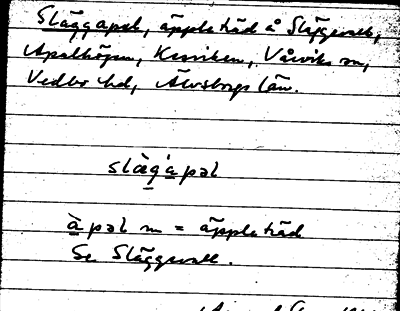 Släggapal, äppleträd å Släggevall,
Apalhöjen, Kesviken, Vårviks sn,
Vedbo hd, Älvsborgs län.
slàg'a pal
àpal m = äppleträd
Se Släggevall.